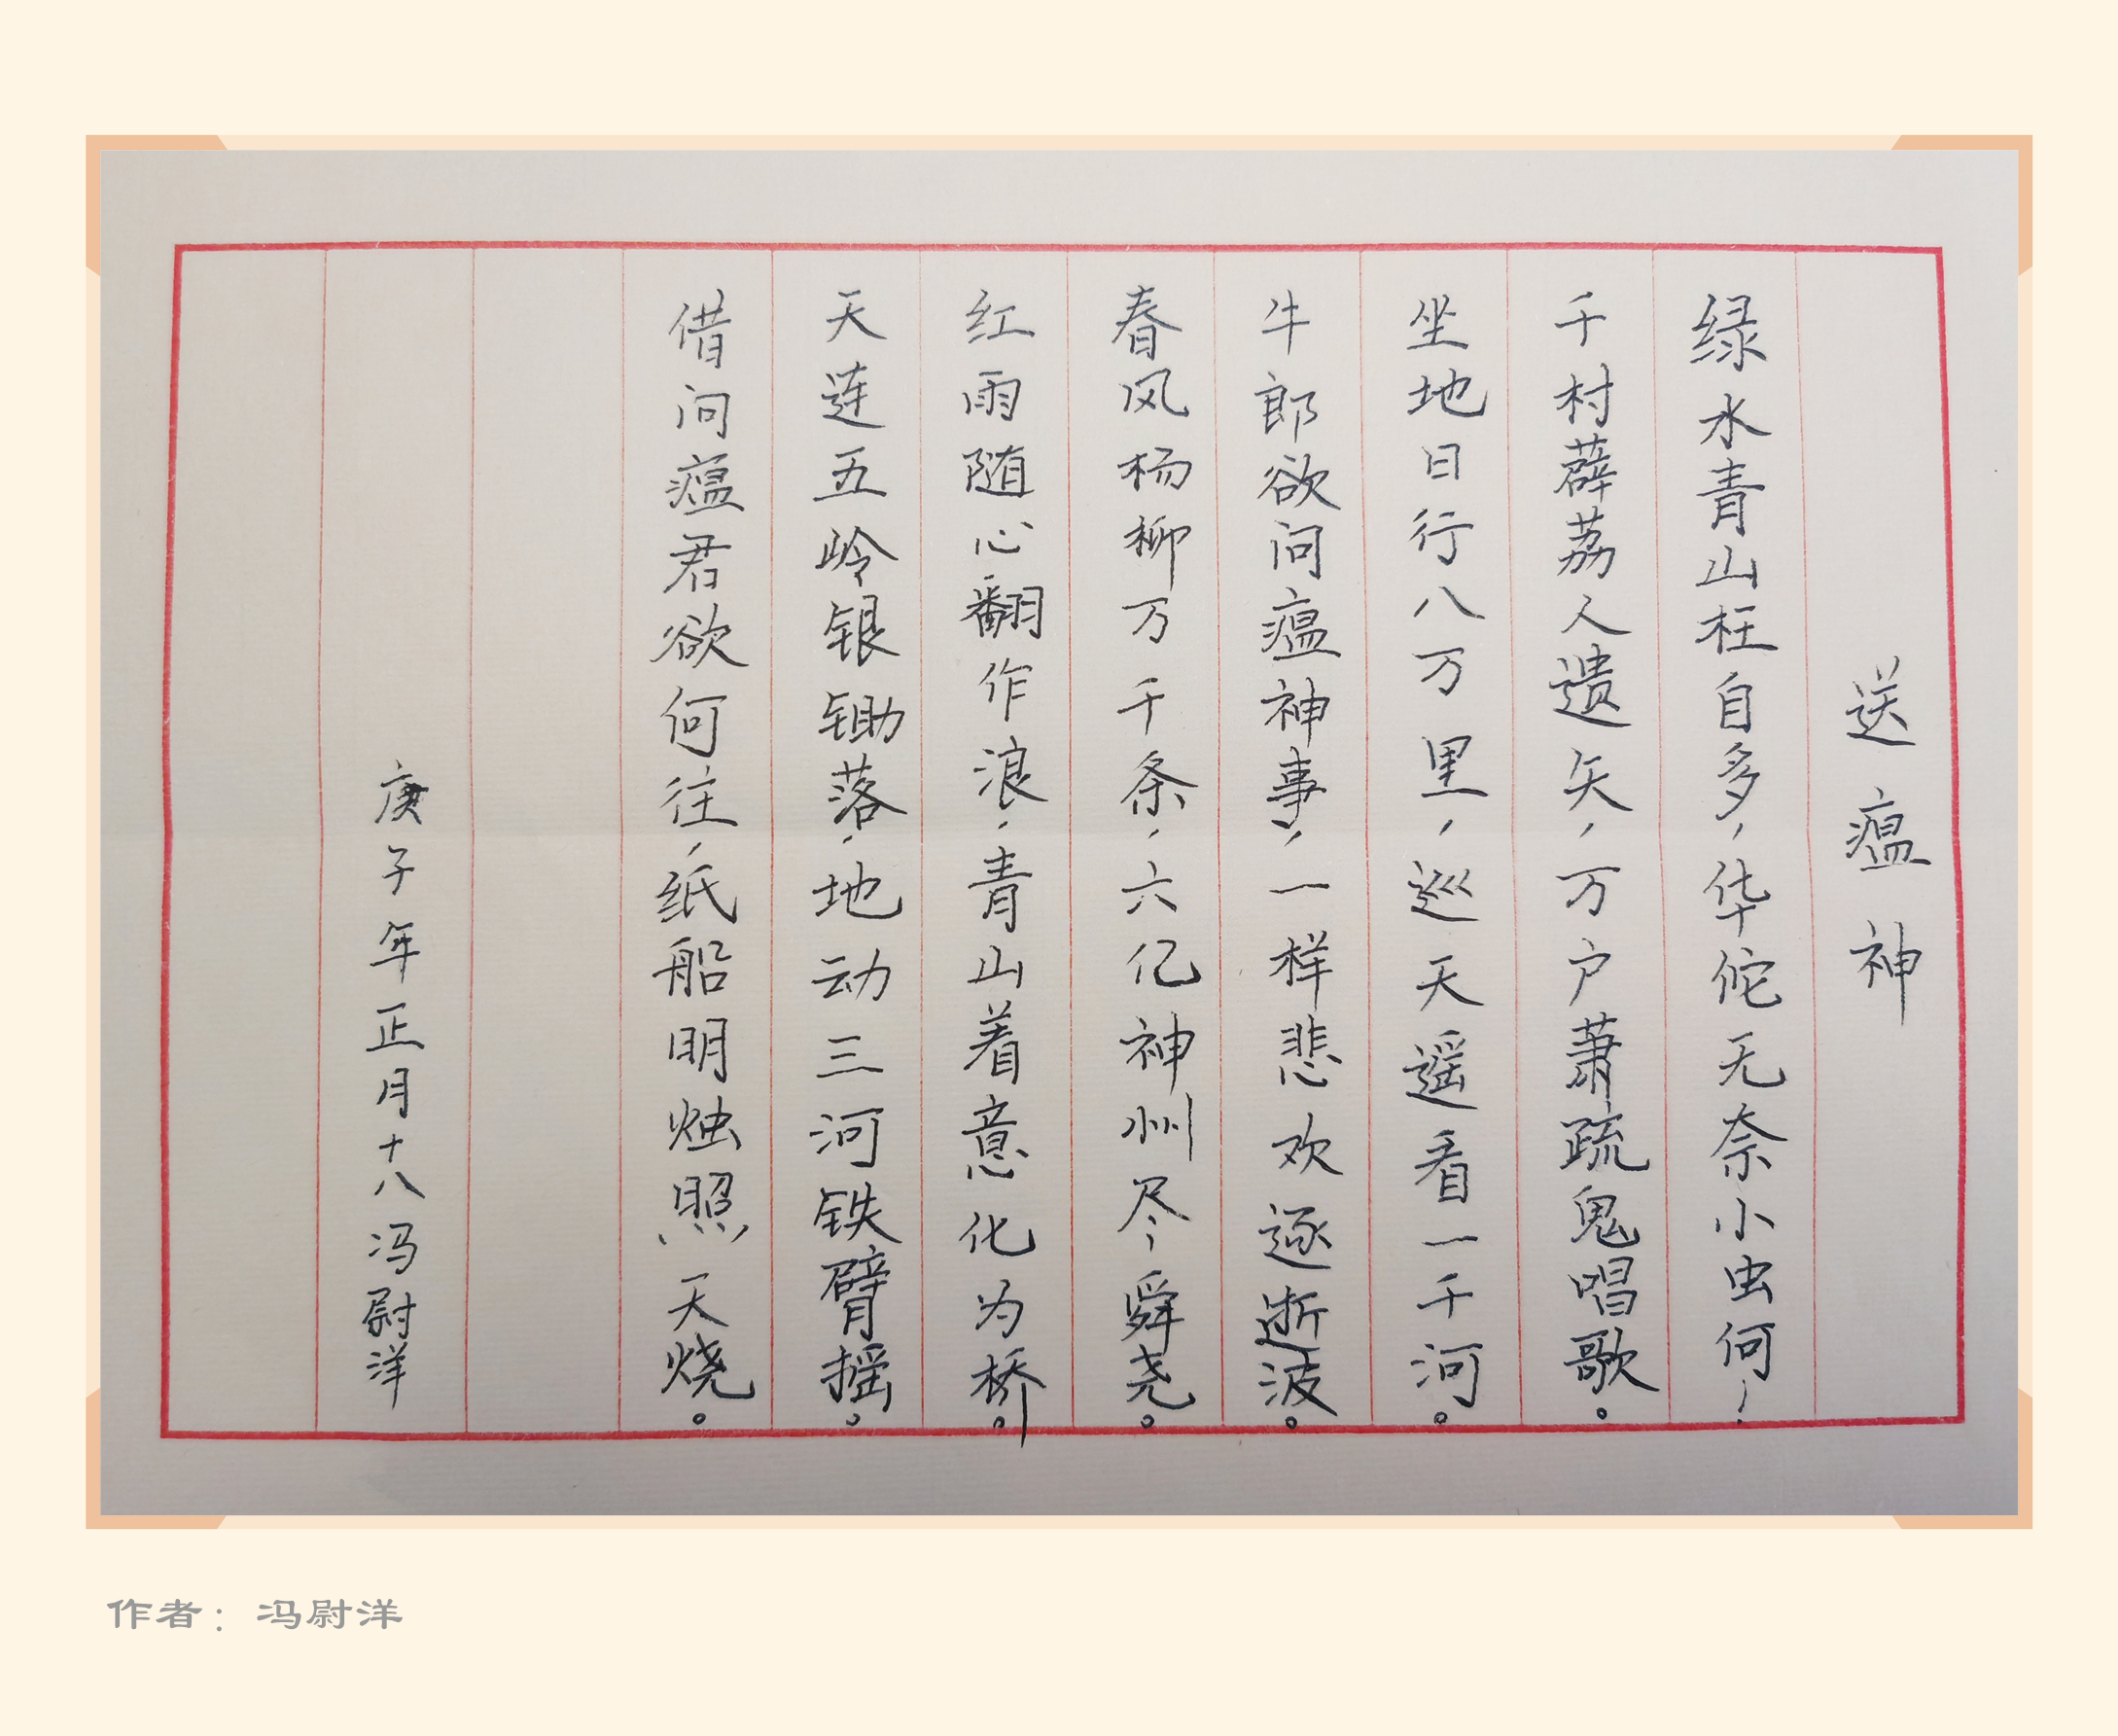 送瘟神
绿水青山枉自多，华佗无奈小虫何！
千村薜荔人遗矢，万户萧疏鬼唱歌。
坐地日行八万里，巡天遥看一千河。
牛郎欲问瘟神事，一样悲欢逐逝波。
春风杨柳万千条，六亿神州尽舜尧。
红雨随心翻作浪，青山着意化为桥。
天连五岭银锄落，地动三河铁臂摇。
借问瘟君欲何往，纸船明烛照天烧。
庚子年正月十八冯尉洋
作者：冯尉洋